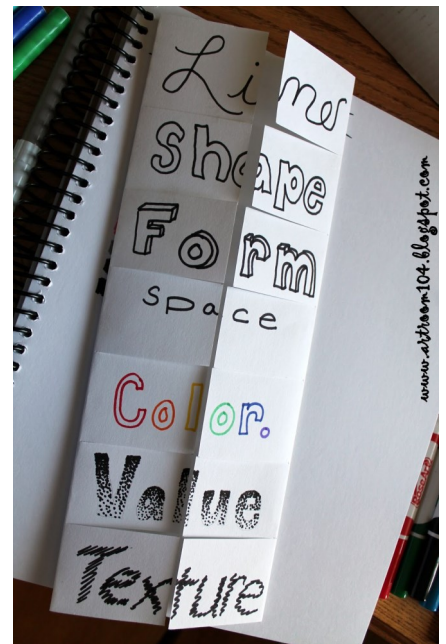 Lines
Shape
Form
space
Color.
Value
Texture
www.artroom104.blogspot.com